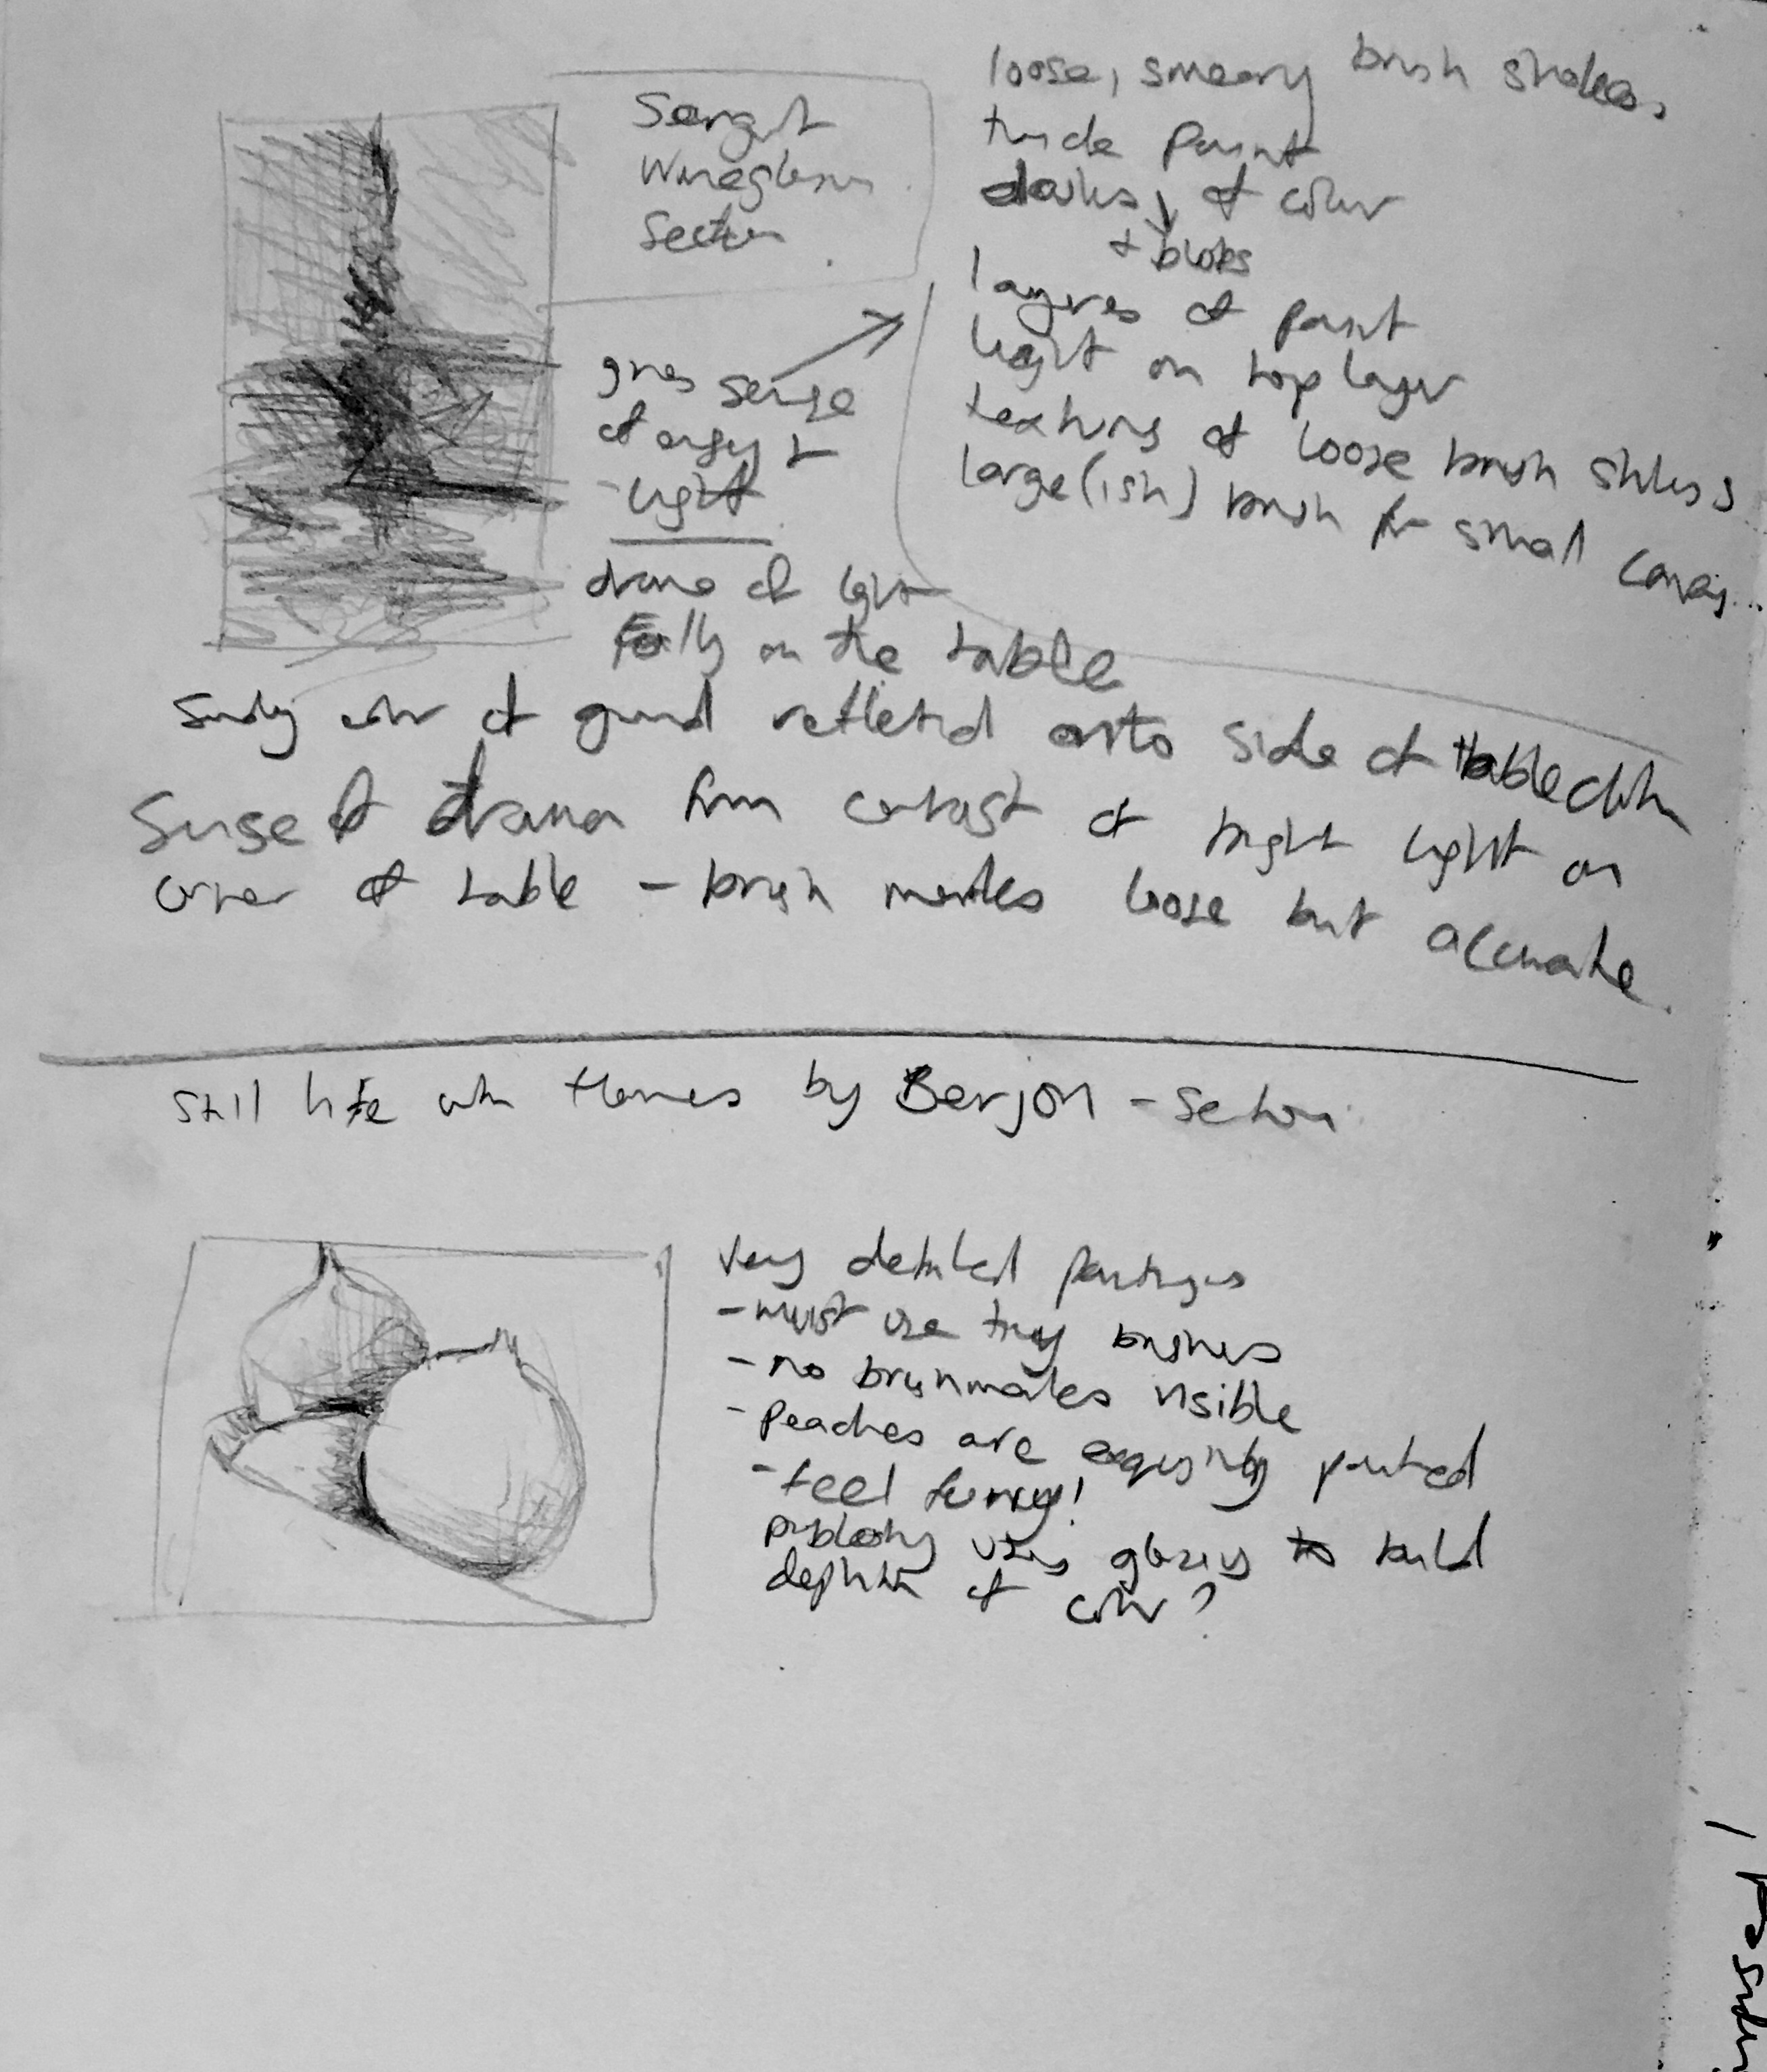 Sargent
Wineglasses
Section
loose, smeary brush strokes,
thick paint
dashes, of colour
+ blobs
layers of paint
light on top layer
textures of loose brush strokes
large(ish) brush for small canvas...
gives sense
of energy +
- light
drama of light
Falls on the table
Sandy colour of ground reflected onto side of tablecloth
Sense of drama from contrast of bright light on
corner of table - brush marks loose but accurate.
Still life with flowers by Berjon - section
Very detailed paintings
- must use tiny brushes
- no brushmarks visible
- Peaches are exquisitely painted
- feel furry!
probably uses glazes to build
depth of colour?